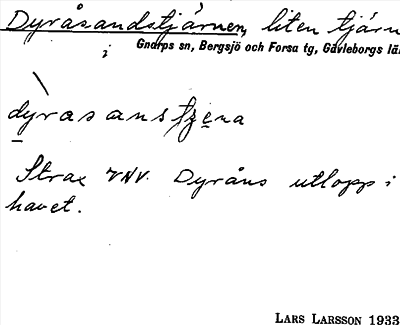 Dyråsandstjärnen, liten tjärn
i Gnarps sn, Bergsjö och Forsa tg, Gävleborgs lä
dyrasanstjena
Strax VNV. Dyråns utlopp i
havet.
LARS LARSSON 1933